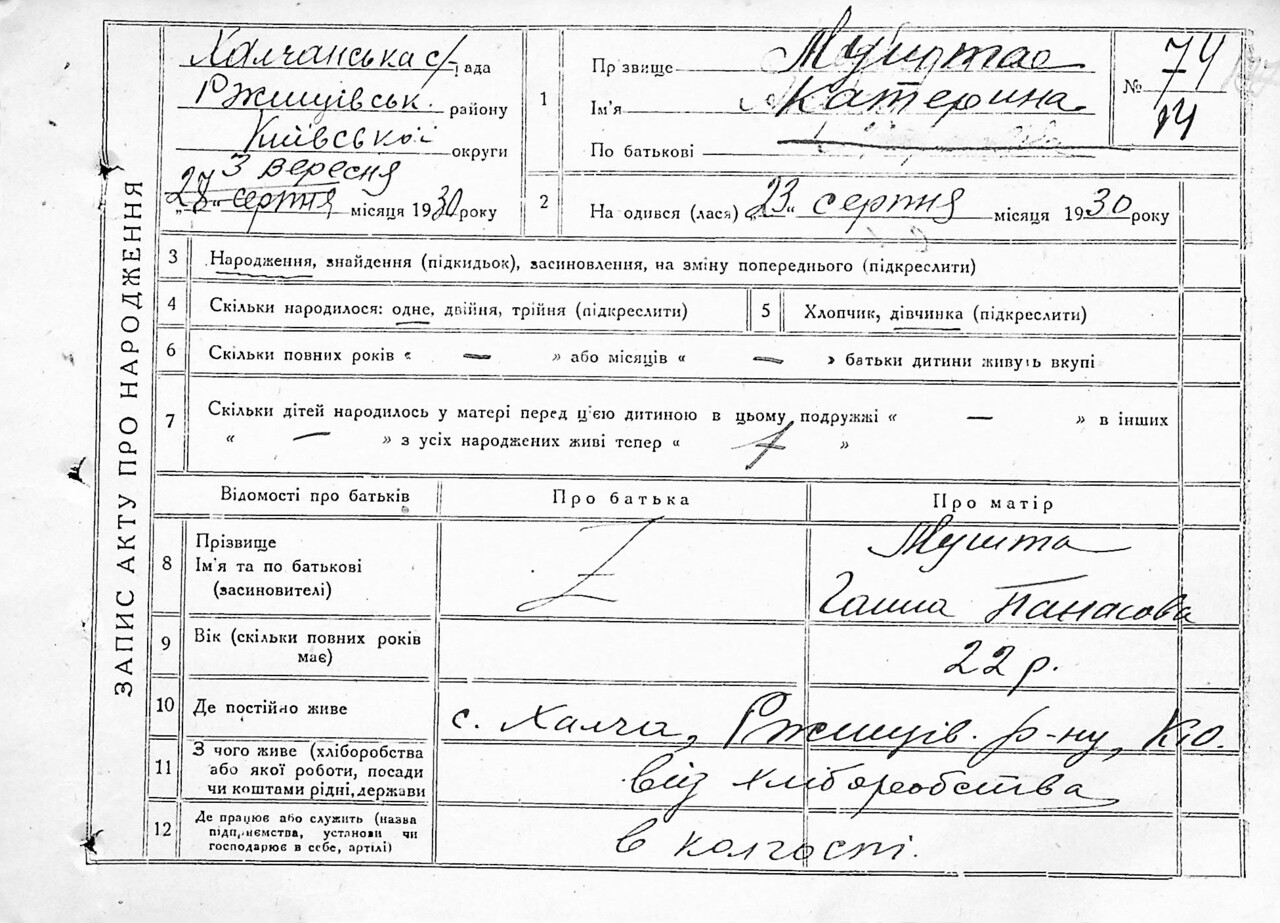 ЗАПИС АКТУ ПРО НАРОДЖЕННЯ
Халчанська с/рада
Ржищівськ. району
Київської округи
3 вересня
серпня місяця 1930 року
1
Прізвище Мушта
Ім'я Катерина
По батькові
№ 74
14
2
На одився (лася) „23“ серпня місяця 1930 року
3
Народження, знайдення (підкидьок), засиновлення, на зміну попереднього (підкреслити)
4
Скільки народилося: одне, двійня, трійня (підкреслити)
5
Хлопчик, дівчинка (підкреслити)
6
Скільки повних років « — » або місяців « — » батьки дитини живуть вкупі
7
Скільки дітей народилось у матері перед ц'єю дитиною в цьому подружжі « — » в інших
« — » з усіх народжених живі тепер « »
Відомості про батьків
Про батька
Про матір
8
Прізвище
Ім'я та по батькові
(засиновителі)
Мушта
Ганна Панасова
9
Вік (скільки повних років
має)
22 р.
10
Де постійно живе
с. Халча, Ржищів. р-ну, К.О.
11
З чого живе (хліборобства
або якої роботи, посади
чи коштами рідні, держави
від хлібореобства
12
Де працює або служить (назва
підприємства, установи чи
господарює в себе, артілі)
в колгоспі.